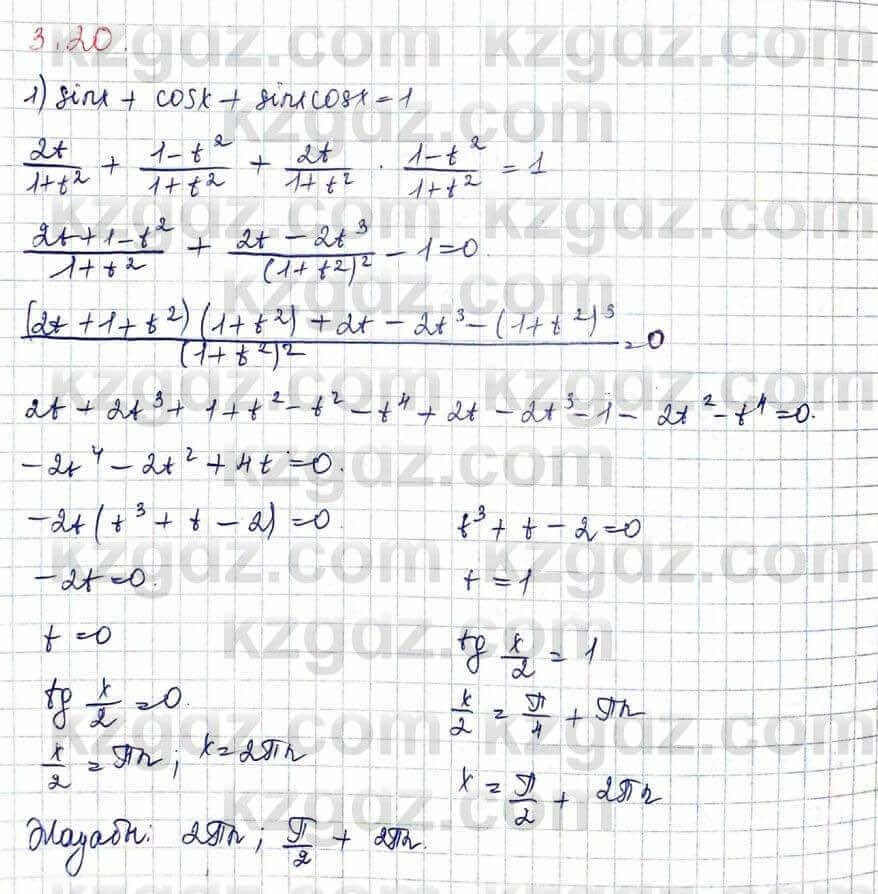 3.20.
1) sinx + cosx + sinxcosx = 1
2t/(1+t²) + (1-t²)/(1+t²) + 2t/(1+t²) · (1-t²)/(1+t²) = 1
(2t+1-t²)/(1+t²) + (2t-2t³)/(1+t²)² - 1 = 0.
((2t+1+t²)(1+t²)+2t-2t³-(1+t²)³)/(1+t²)² = 0
2t + 2t³ + 1 + t² - t² - t⁴ + 2t - 2t³ - 1 - 2t² - t⁴ = 0.
-2t⁴ - 2t² + 4t = 0.
-2t(t³ + t - 2) = 0.
-2t = 0.
t = 0
tg x/2 = 0.
x/2 = πn; x = 2πn
t³ + t - 2 = 0
t = 1
tg x/2 = 1
x/2 = π/4 + πn
x = π/2 + 2πn
Жауабы: 2πn; π/2 + 2πn.
kzgdz.com